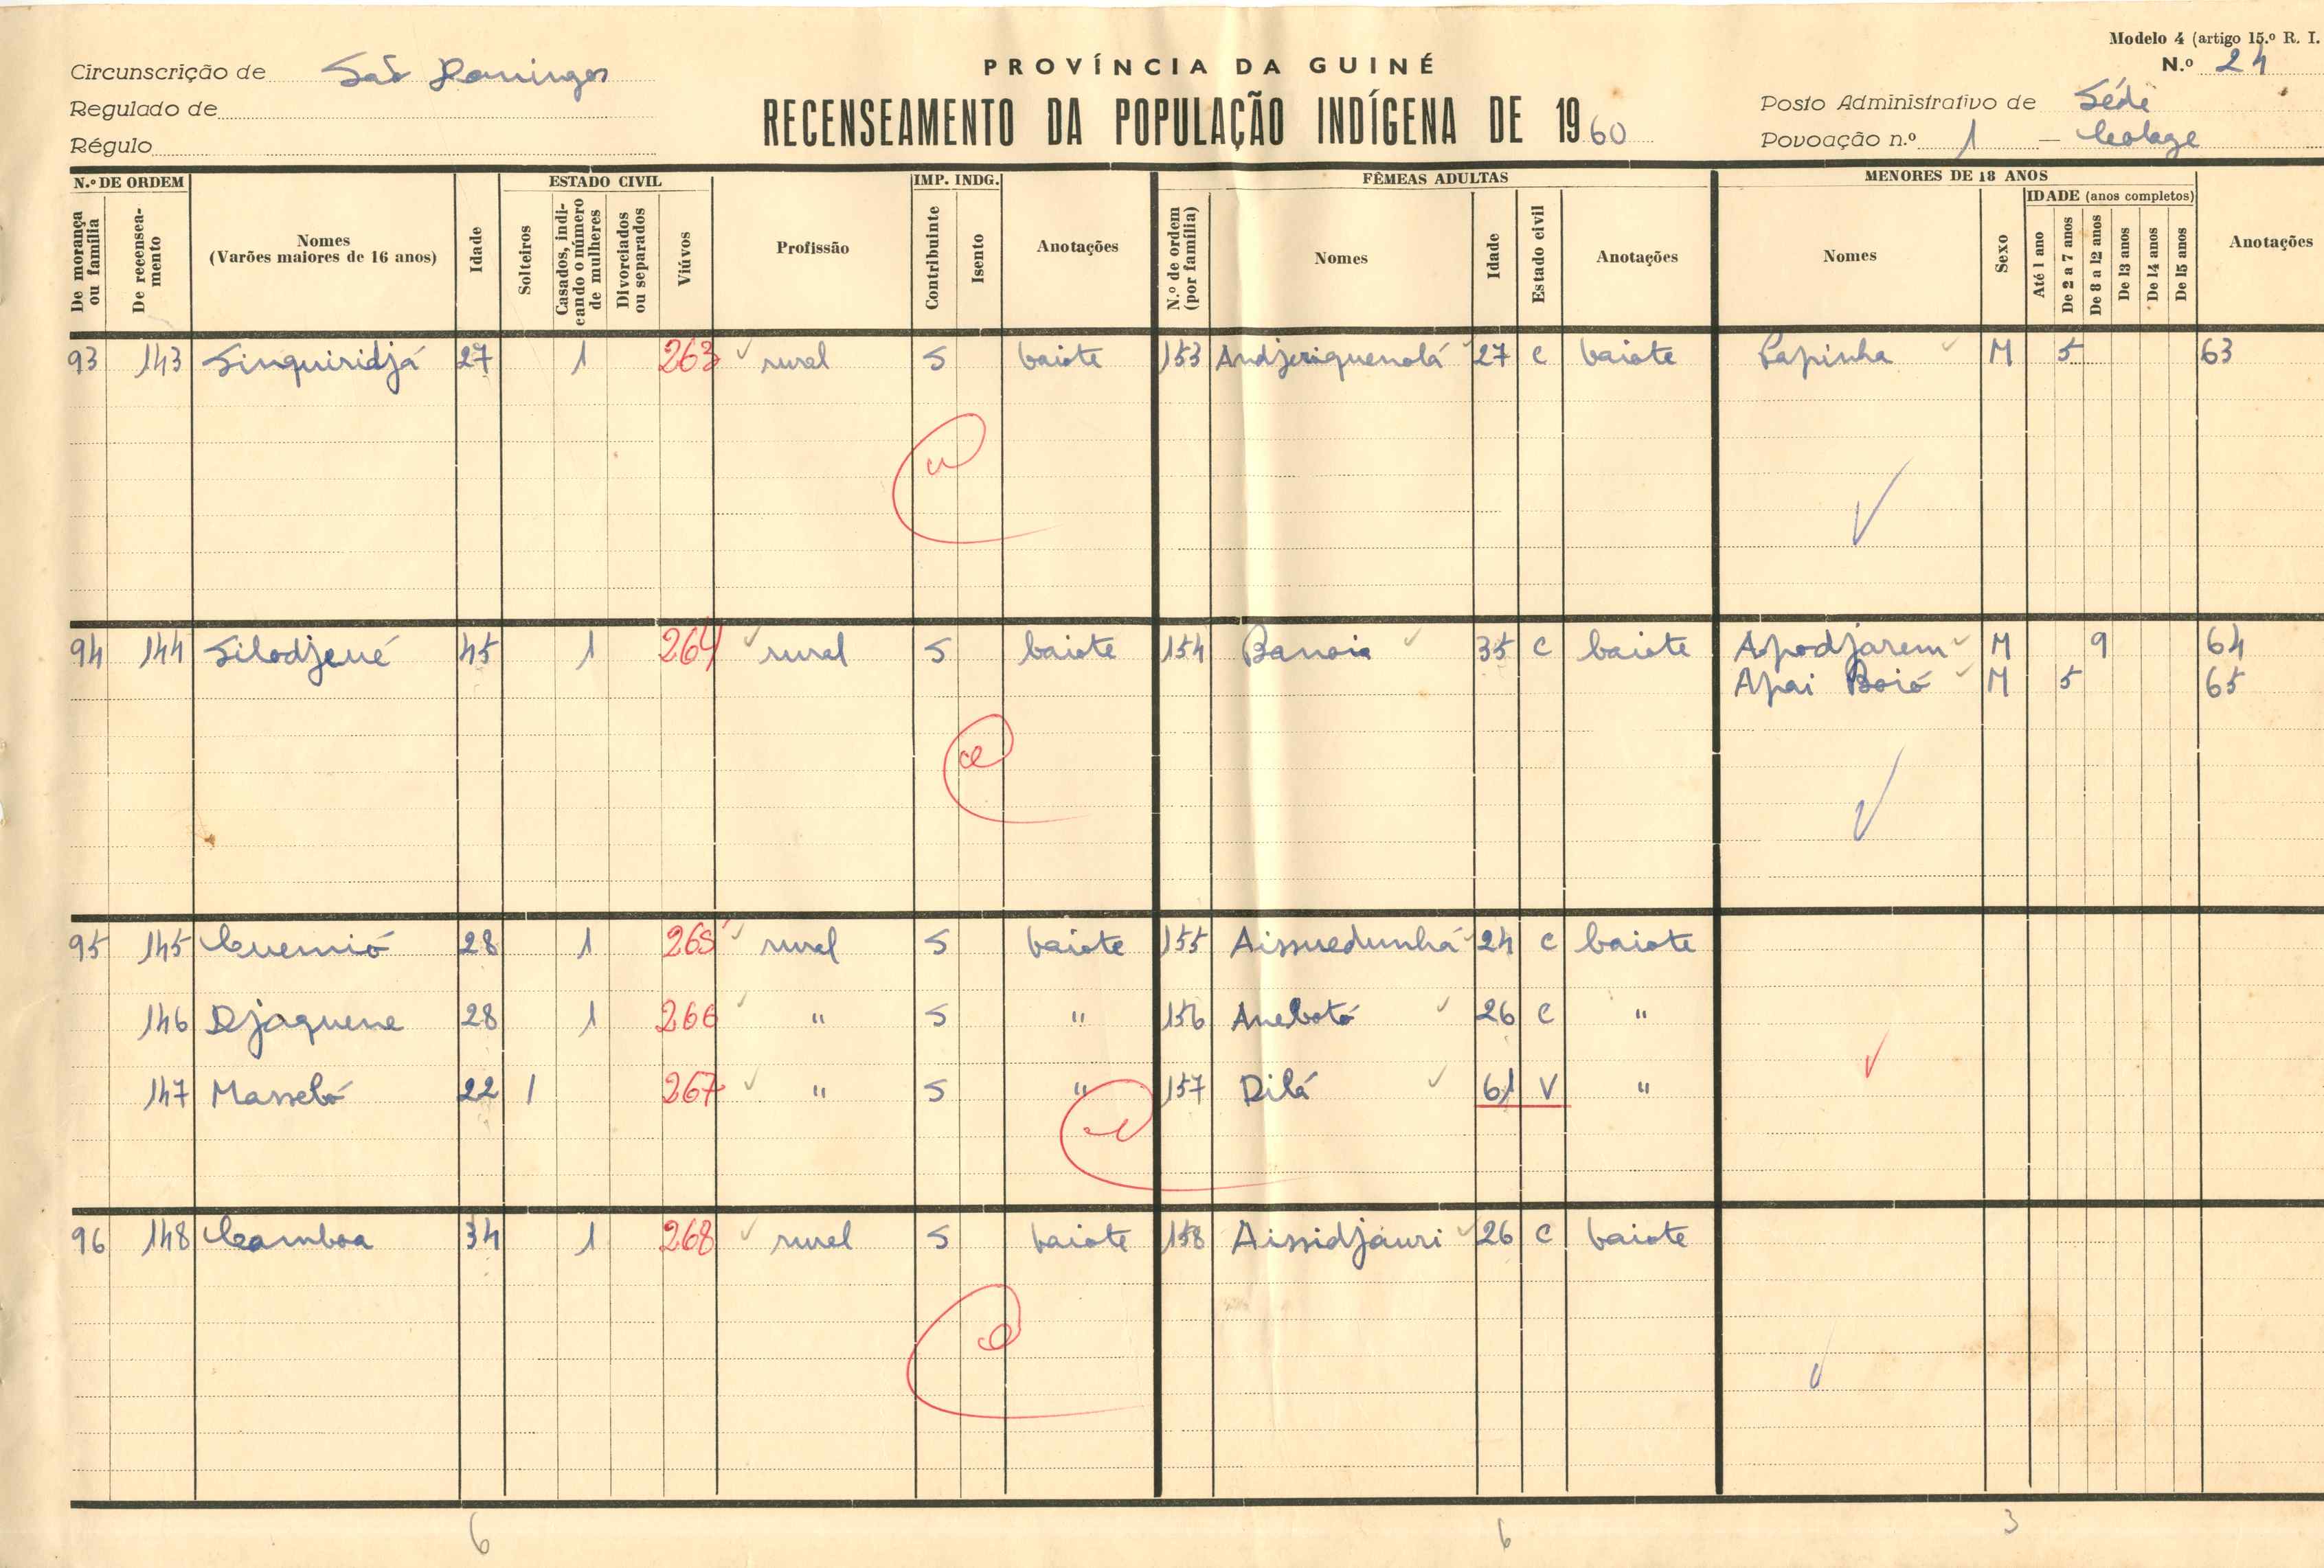 Modelo 4 (artigo 15.º R. I.
N.º 24
PROVÍNCIA DA GUINÉ
RECENSEAMENTO DA POPULAÇÃO INDÍGENA DE 1960
Circunscrição de São Domingos
Regulado de
Régulo
Posto Administrativo de Séde
Povoação n.º 1 — Colage
N.º DE ORDEM ESTADO CIVIL IMP. INDG. FÊMEAS ADULTAS MENORES DE 18 ANOS
IDADE (anos completos)
De morança ou família De recenseamento Nomes (Varões maiores de 16 anos) Idade Solteiros Casados, indicando o número de mulheres Divorciados ou separados Viúvos Profissão Contribuinte Isento Anotações N.º de ordem (por família) Nomes Idade Estado civil Anotações Nomes Sexo Até 1 ano De 2 a 7 anos De 8 a 12 anos De 13 anos De 14 anos De 15 anos Anotações
93 143 Sinquiridjá 27 1 263 rural S baiote 153 Andjeriquenolá 27 C baiote Papinha M 5 63
94 144 Silodjené 45 1 264 rural S baiote 154 Banoia 35 C baiote Apodjarem M 9 64
Apai Boió M 5 65
95 145 Cuemió 28 1 265 rural S baiote 155 Aissuedunhá 24 C baiote
146 Djaquene 28 1 266 " S " 156 Anebotó 26 C "
147 Masseló 22 1 267 " S " 157 Dilá 61 V "
96 148 Camboa 34 1 268 rural S baiote 158 Aissidjauri 26 C baiote
6 6 3